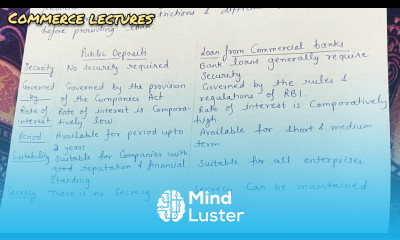 COMMERCE LECTURES
restrictions &
before providing
Public Deposits
Loan from Commercial banks
Security No security required
Bank loans generally require
Security
Governed by Governed by the provision
of the Companies Act
Governed by the rules &
regulations of RBI.
Rate of interest Rate of interest is Compara-
tively low.
Rate of interest is Comparatively
high.
Period Available for period upto
3 years.
Available for short & medium
term
Suitability Suitable for Companies with
good reputation & financial
Standing
Suitable for all enterprises.
Secrecy There is no Secrecy
Secrecy Can be maintained
Mind
Luster